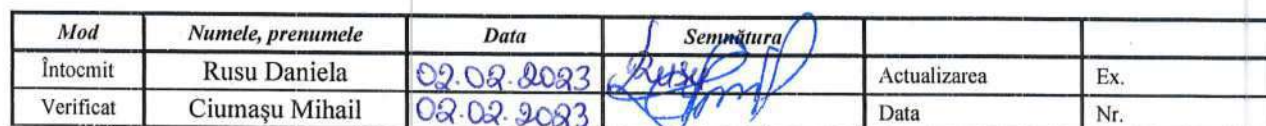 Mod Numele, prenumele Data Semnătura
Întocmit Rusu Daniela 02.02.2023 Rusu Actualizarea Ex.
Verificat Ciumaşu Mihail 02.02.2023 Data Nr.